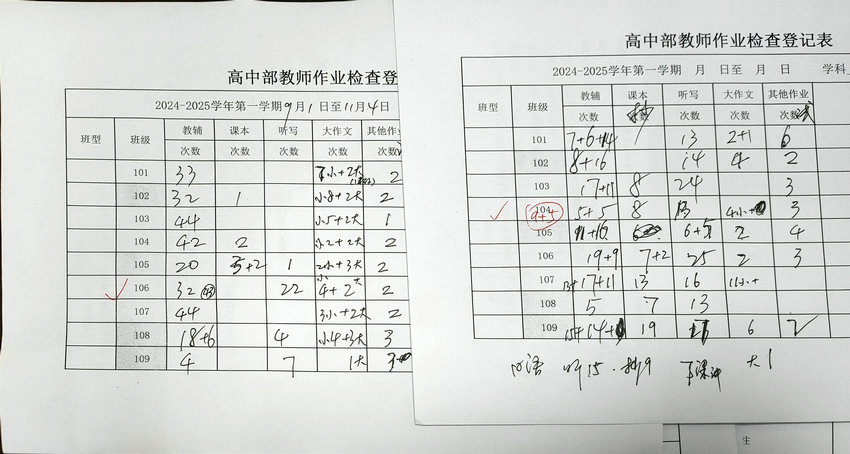 高中部教师作业检查登
2024-2025学年第一学期9月1日至11月4日
班型 班级 教辅 课本 听写 大作文 其他作业
次数 次数 次数 次数 次数
101 33 2
102 32 1 小8+2大 2
103 44 小5+2大 1
104 42 2 小2+2大 2
105 20 5+2 1 2小+3大 2
106 32 22 小4+2大 2
107 44 3小+2大 2
108 18+6 4 小4+3大 3
109 4 7 1大 3
高中部教师作业检查登记表
2024-2025学年第一学期 月 日至 月 日 学科
班型 班级 教辅 课本 听写 大作文 其他作业
次数 次数 次数 次数 次数
101 7+6+14 1 13 2+1 6
102 8+16 14 4 2
103 17+11 8 24 3
104 9+5 5+5 8 13 4小+ 3
105 +16 6 6+5 2 4
106 19+9 7+2 25 2 3
107 13+17+11 13 16
108 5 7 13
109 15+14+ 19 17 6 2
听15 大1
生